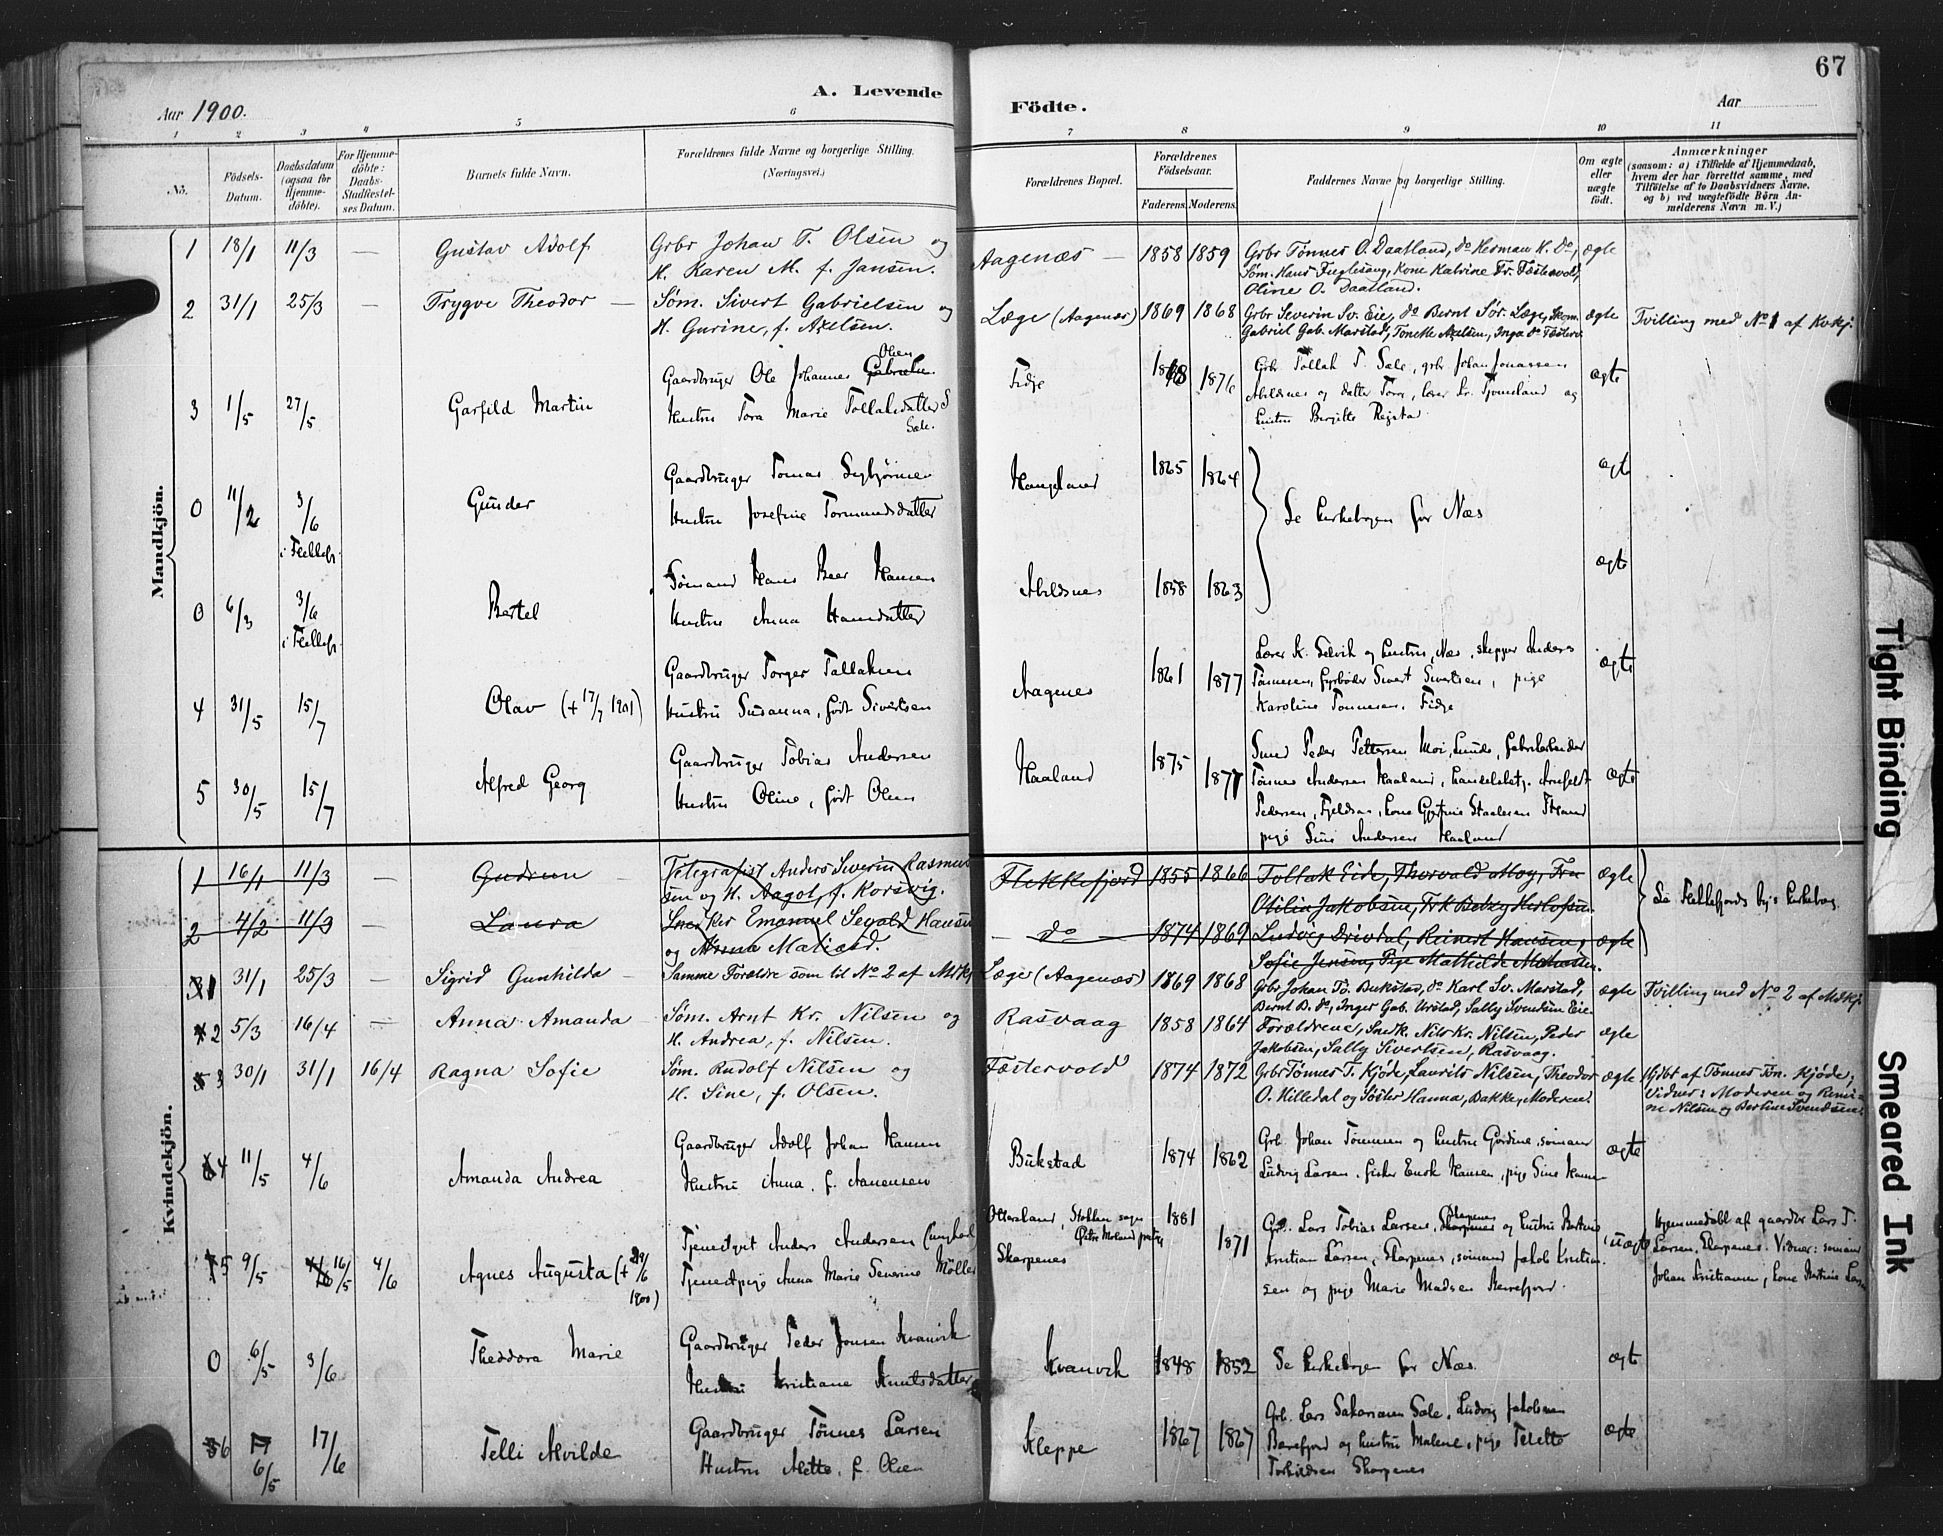 67
Aar 1900.
A. Levende
Födte.
Aar
1 2 3 4 5 6 7 8 9 10 11
No.
Födsels-
Datum.
Daabsdatum
(ogsaa for
Hjemme-
döbte).
For Hjemme-
döbte:
Daabs-
Stadfæstel-
ses Datum.
Barnets fulde Navn.
Forældrenes fulde Navne og borgerlige Stilling.
(Næringsvei.)
Forældrenes Bopæl.
Forældrenes
Födselsaar.
Faderens. Moderens.
Faddernes Navne og borgerlige Stilling.
Om ægte
eller
uægte
födt.
Anmærkninger
(saasom: a) i Tilfælde af Hjemmedaab,
hvem der har forrettet samme, med
Tilföielse af to Daabsvidners Navne,
og b) ved uægtefödte Börn An-
melderens Navn m. V.)
Mandkjön.
1 18/1 11/3 — Gustav Adolf
Grbr Johan T. Olsen og
H. Karen M. f. Jansen.
Aagenæs — 1858 1859
Grbr Tønnes O. Daatland, do Herman K. do,
Søm. Hans Fuglesang, Kone Katrine Fr. Fæstevold,
Oline O. Daatland.
ægte
2 31/1 25/3 — Trygve Theodor —
Søm. Sivert Gabrielsen og
H. Gurine, f. Axelsen.
Læge (Aagenæs) 1869 1868
Grbr Severin Sv. Eie, do Bernt Sør. Læge, Skom.
Gabriel Gab. Marstad, Tonette Axelsen, Inga do Fæstevo
ægte
Tvilling med No 1 af Kvkj.
3 1/5 27/5 Garfild Martin
Gaardbruger Ole Johannes Olsen
Hustru Tora Marie Tollaksdatter
Sæle.
Fidje 1876
Grb Tollak T. Sæle, grb Johan Jonassen
Abildsnes og datter Tora, lærer Fr. Tjomsland og
hustru Birgitte Regista
ægte
0 11/2 3/6
i Flekkefj.
Gunder
Gaardbruger Tomas Sigbjørnsen
Hustru Josefine Tormundsdatter
1865 1864
Se Kirkebogen for Næs
ægt
0 6/3 3/6
i Flekkefj.
Bertel
Sømand Hans Beer Hansen
Hustru Anna Hansdatter
Abildsnes 1858 1863
ægte
4 31/5 15/7 Olav (+ 17/7 1901)
Gaardbruger Torger Tallaksen
Hustru Susanna, født Sivertsen
Aagenes 1861 1877
Lærer K. Selvik og hustru, Næs, skipper Anders
Tønnesen, fyrbøder Sivert Sivertsen, pige
Karoline Tønnesen, Fidje
ægte
5 30/5 15/7 Alfred Georg
Gaardbruger Tobias Andersen
Hustru Oline, født Olsen
Haaland 1875 1877
Smed Peder Pettersen Moi, Lunde, fabrikarbeider
Tønnes Andersen Haaland, handelsbetj. Arnfeldt
Pedersen, Fjeldsaa, kone Gjertine Staalesen
pige Sine Andersen Haaland
ægte
Kvindekjön.
1 16/1 11/3 — Gudrun —
Telegrafist Anders Severin Rasmus
sen og H. Aagot, f. Korsvig.
Flekkefjord 1855 1866
Tollak Eide, Thorvald Moy, Fru
Otilia Jakobsen, Frk Betzy Herlofsen.
ægte
Se Flekkefjords bys Kirkebog.
2 4/2 11/3 — Laura
Snedker Emanuel Sevald Hansen
og Anna Mathild.
— do — 1874 1869
Ludvig Drivdal, Reinert Hansen,
Sofie Jensen, Pige Mathilde Mathisen.
ægte
1 31/1 25/3 — Sigrid Gunhilda —
Samme Forældre som til No 2 af Mdkj.
Læge (Aagenæs) 1869 1868
Grbr Johan Tø. Bukstad, do Karl Sv. Marstad,
Bernt B. do, Inger Gab. Urstad, Sally Svendsen Eie.
ægte
Tvilling med No 2 af Mdkj.
2 5/3 16/4 — Anna Amanda
Søm. Arnt Kr. Nilsen og
H. Andrea, f. Nilsen.
Rasvaag 1858 1864
Forældrene, Snedk. Nils Kr. Nilsen, Peder
Jakobsen, Sally Sivertsen, Rasvaag.
ægte
3 30/1 31/1 16/4 Ragna Sofie
Søm. Rudolf Nilsen og
H. Sine, f. Olsen.
Fæstevold 1874 1872
Grbr Tønnes T. Kjøde, Laurits Nilsen, Theodor
O. Hilledal og Søster Hanna, Bakke, Moderen.
ægte
Hjdbt af Tønnes Tøn. Kjøde,
Vidner: Moderen og Remi-
ne Nilsen og Bertine Svendsen.
4 11/5 4/6 Amanda Andrea
Gaardbruger Adolf Johan Hansen
Hustru Anna f. Aanensen
Bukstad 1874 1862
Grb. Johan Tønnesen og hustru Gordine, sømand
Ludvig Larsen, fisker Enok Hansen, pige Sine Hansen
ægte
5 9/5 16/5 4/6 Agnes Augusta (+ 29/6
1900)
Tjenestgut Anders Andersen (ungkarl)
Tjenestpige Anna Marie Severine Møller
Stokken sogn
Østre Moland
Skarpenes
1881 1871
Gr. Lars Tobias Larsen, Skarpenes og hustru Bertine
Kristian Larsen, Skarpenes, sømand Jakob Kristian-
sen og pige Marie Madsen
uægte
Hjemmedøbt af gaardbr Lars T.
Larsen, Skarpenes. Vidner: sømand
Johan Kristiansen, kone Bertine Larsen
0 6/5 3/6 Theodora Marie
Gaardbruger Peder Jonsen Kvanvik
Hustru Kristiane Knutsdatter
Kvanvik 1848 1852
Se Kirkebogen for Næs.
ægt
6 6/5 17/6 Telli Alvilde
Gaardbruger Tønnes Larsen
Hustru Alette, f. Olsen
Kleppe 1867 1867
Grb. Lars Sakariassen Sæle, Ludvig Jakobsen
og hustru Malene, pige Telette
Torkildsen Skarpenes
ægte
Tight Binding
Smeared Ink